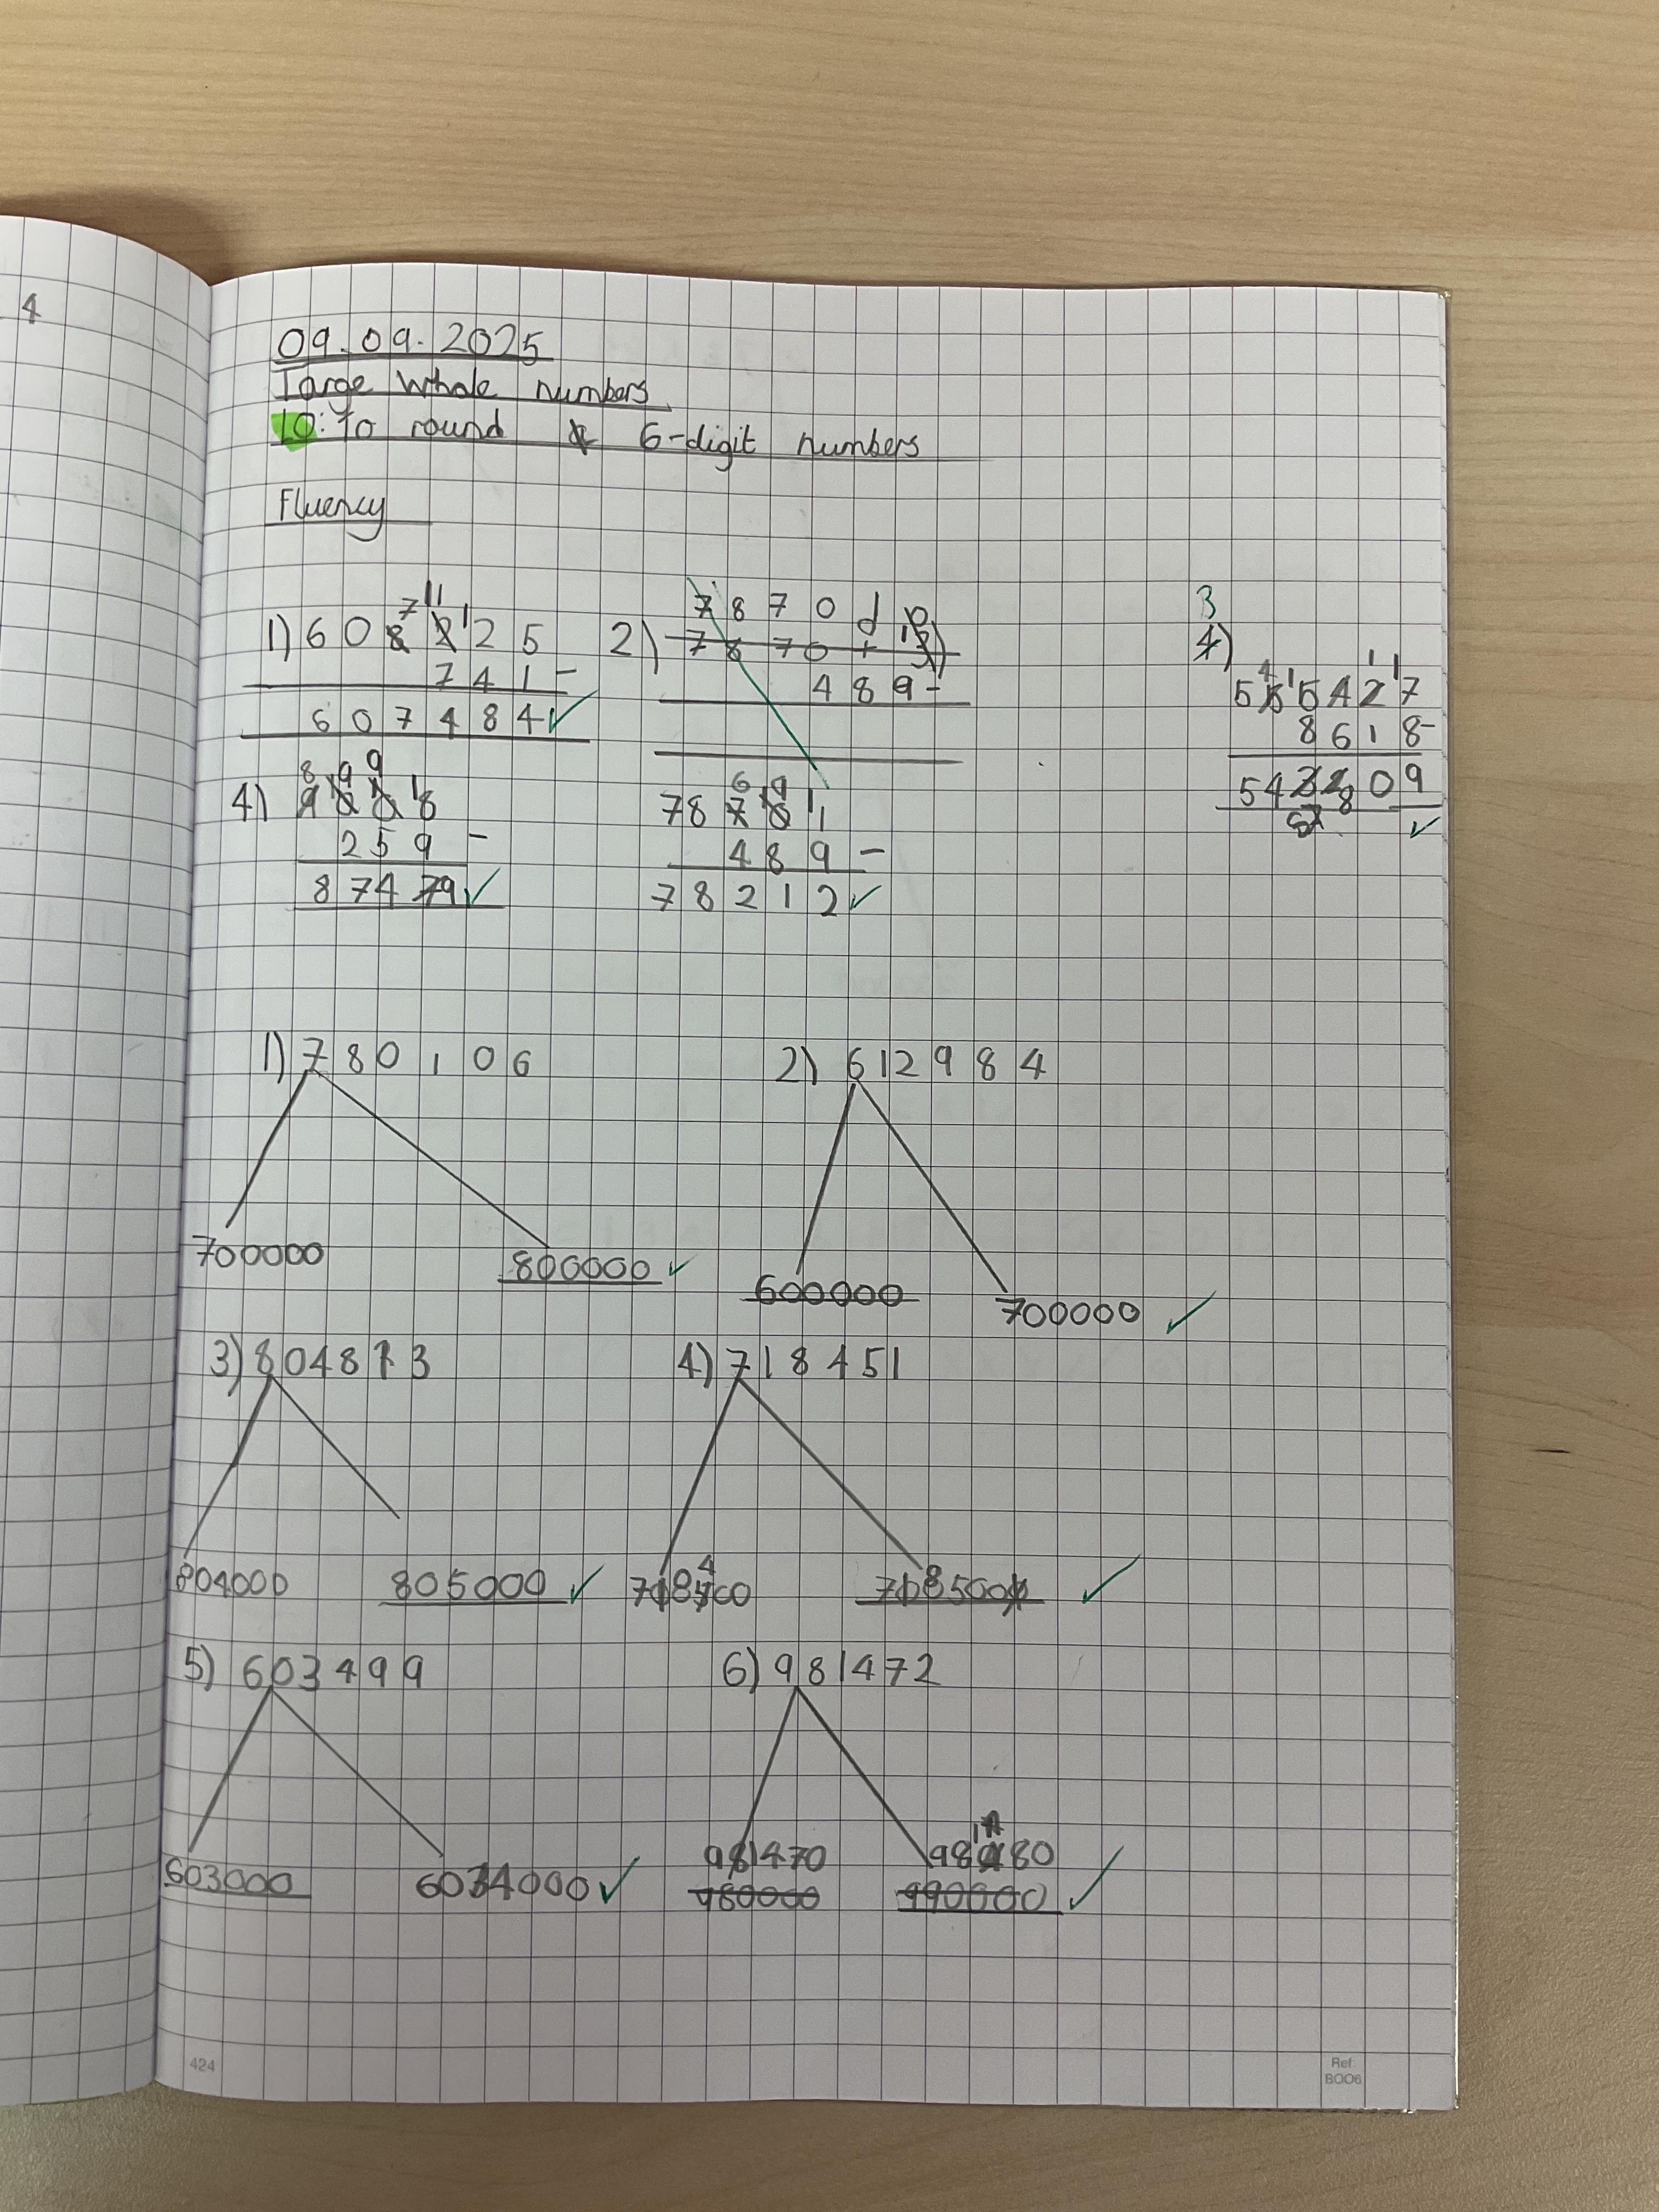 4
09.09.2025
Large Whole numbers
LO: To round 6-digit numbers
Fluency
1) 608225
741 -
607484 ✓
2) 7870
489 -
78701
489 -
78212 ✓
3
4)
555427
8618 -
546809 ✓
4) 9008
259 -
8749 ✓
1) 780106
700000 800000 ✓
2) 612984
600000 700000 ✓
3) 804813
804000 805000 ✓
4) 718451
718400 718500 ✓
5) 603499
603000 604000 ✓
6) 981472
981470 981480 ✓
980000 990000
424
Ref:
BOO6